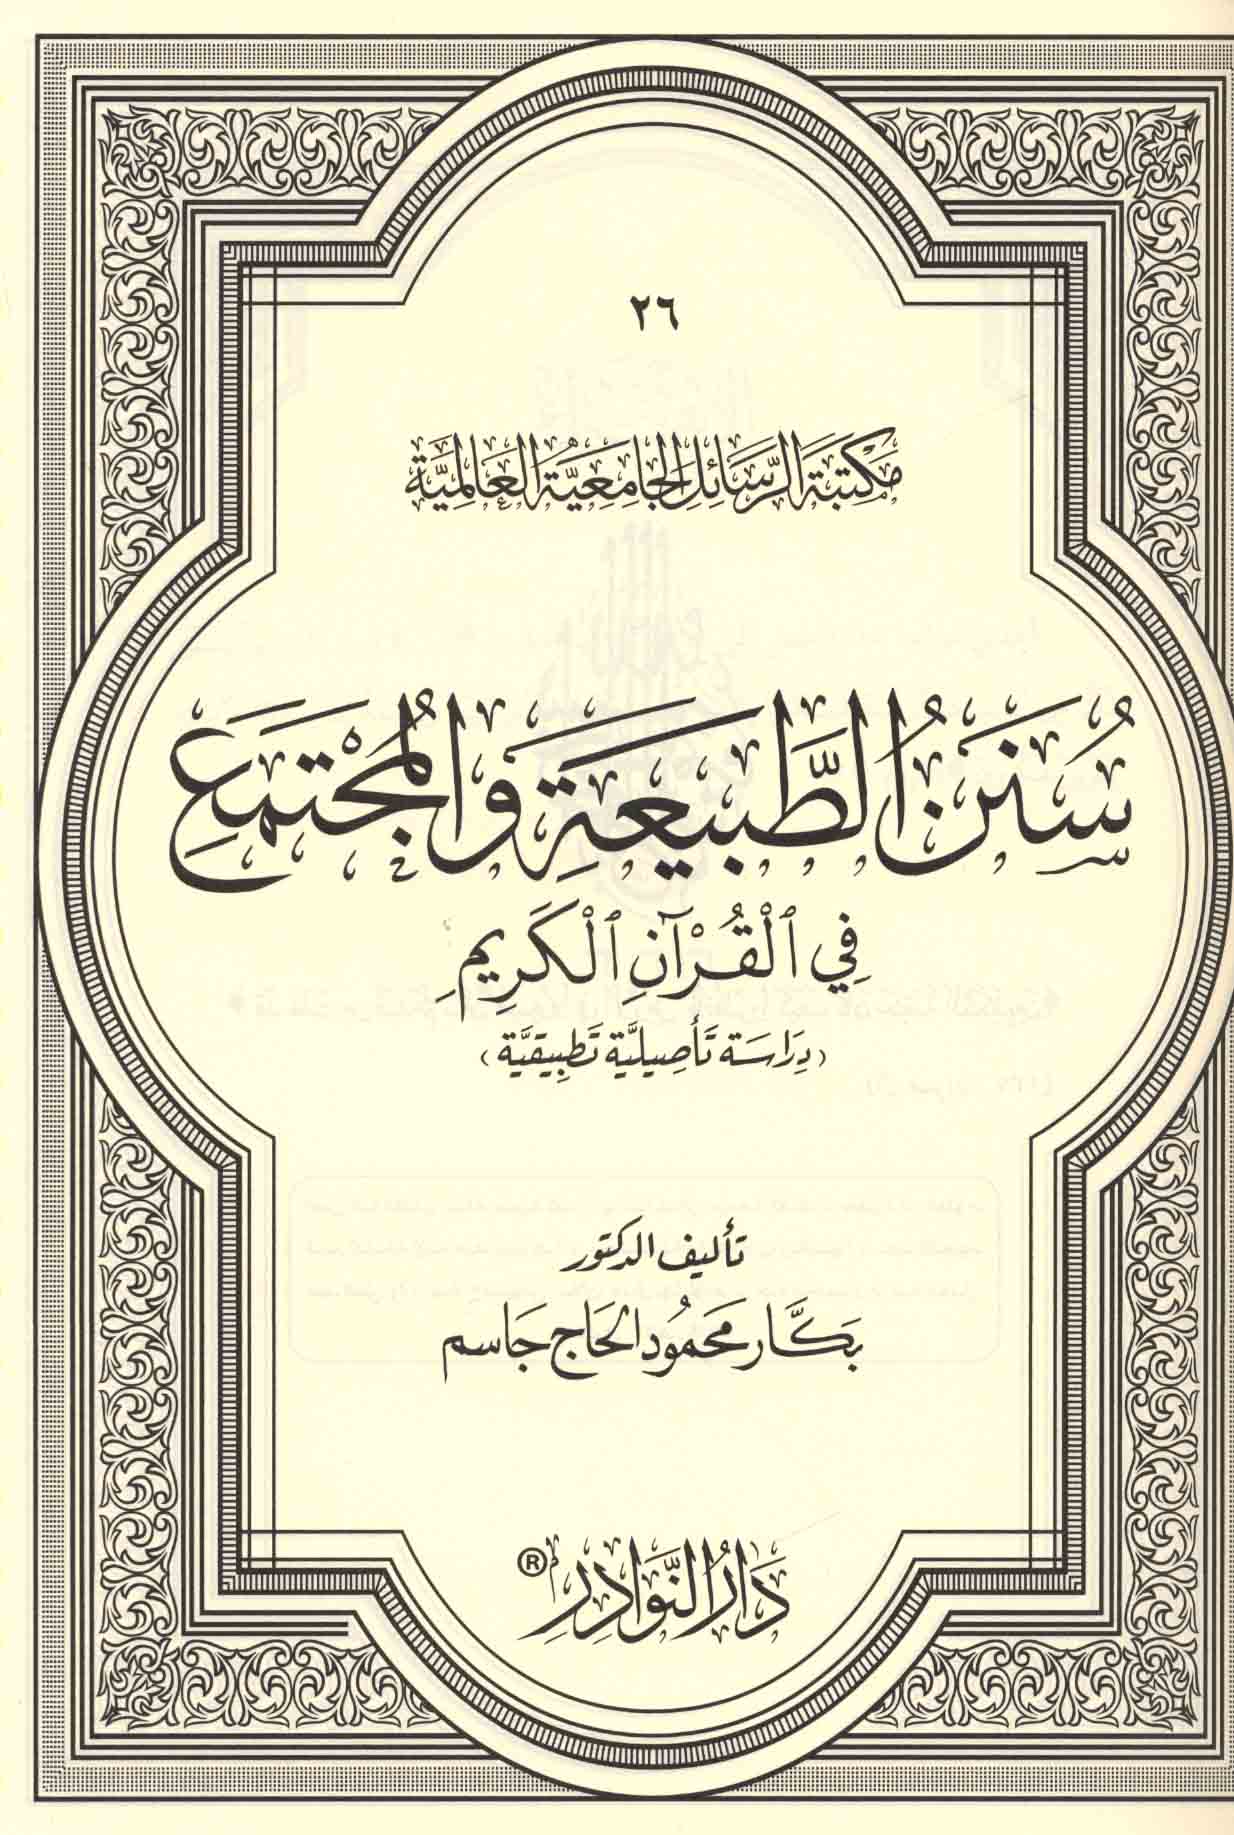 ٢٦
مَكتَبَة الرَّسَائِل الجَامِعِيَّة العَالَمِيَّة
سُنَنُ الطَّبِيعَةِ وَالمُجْتَمَعِ
فِي الْقُرْآنِ الْكَرِيمِ
(دِرَاسَة تَأصِيلِيَّة تَطبِيقِيَّة)
تأليف الدكتور
بَكَّار مَحمُود الحَاج جَاسم
دَارُ النَّوَادِر ®